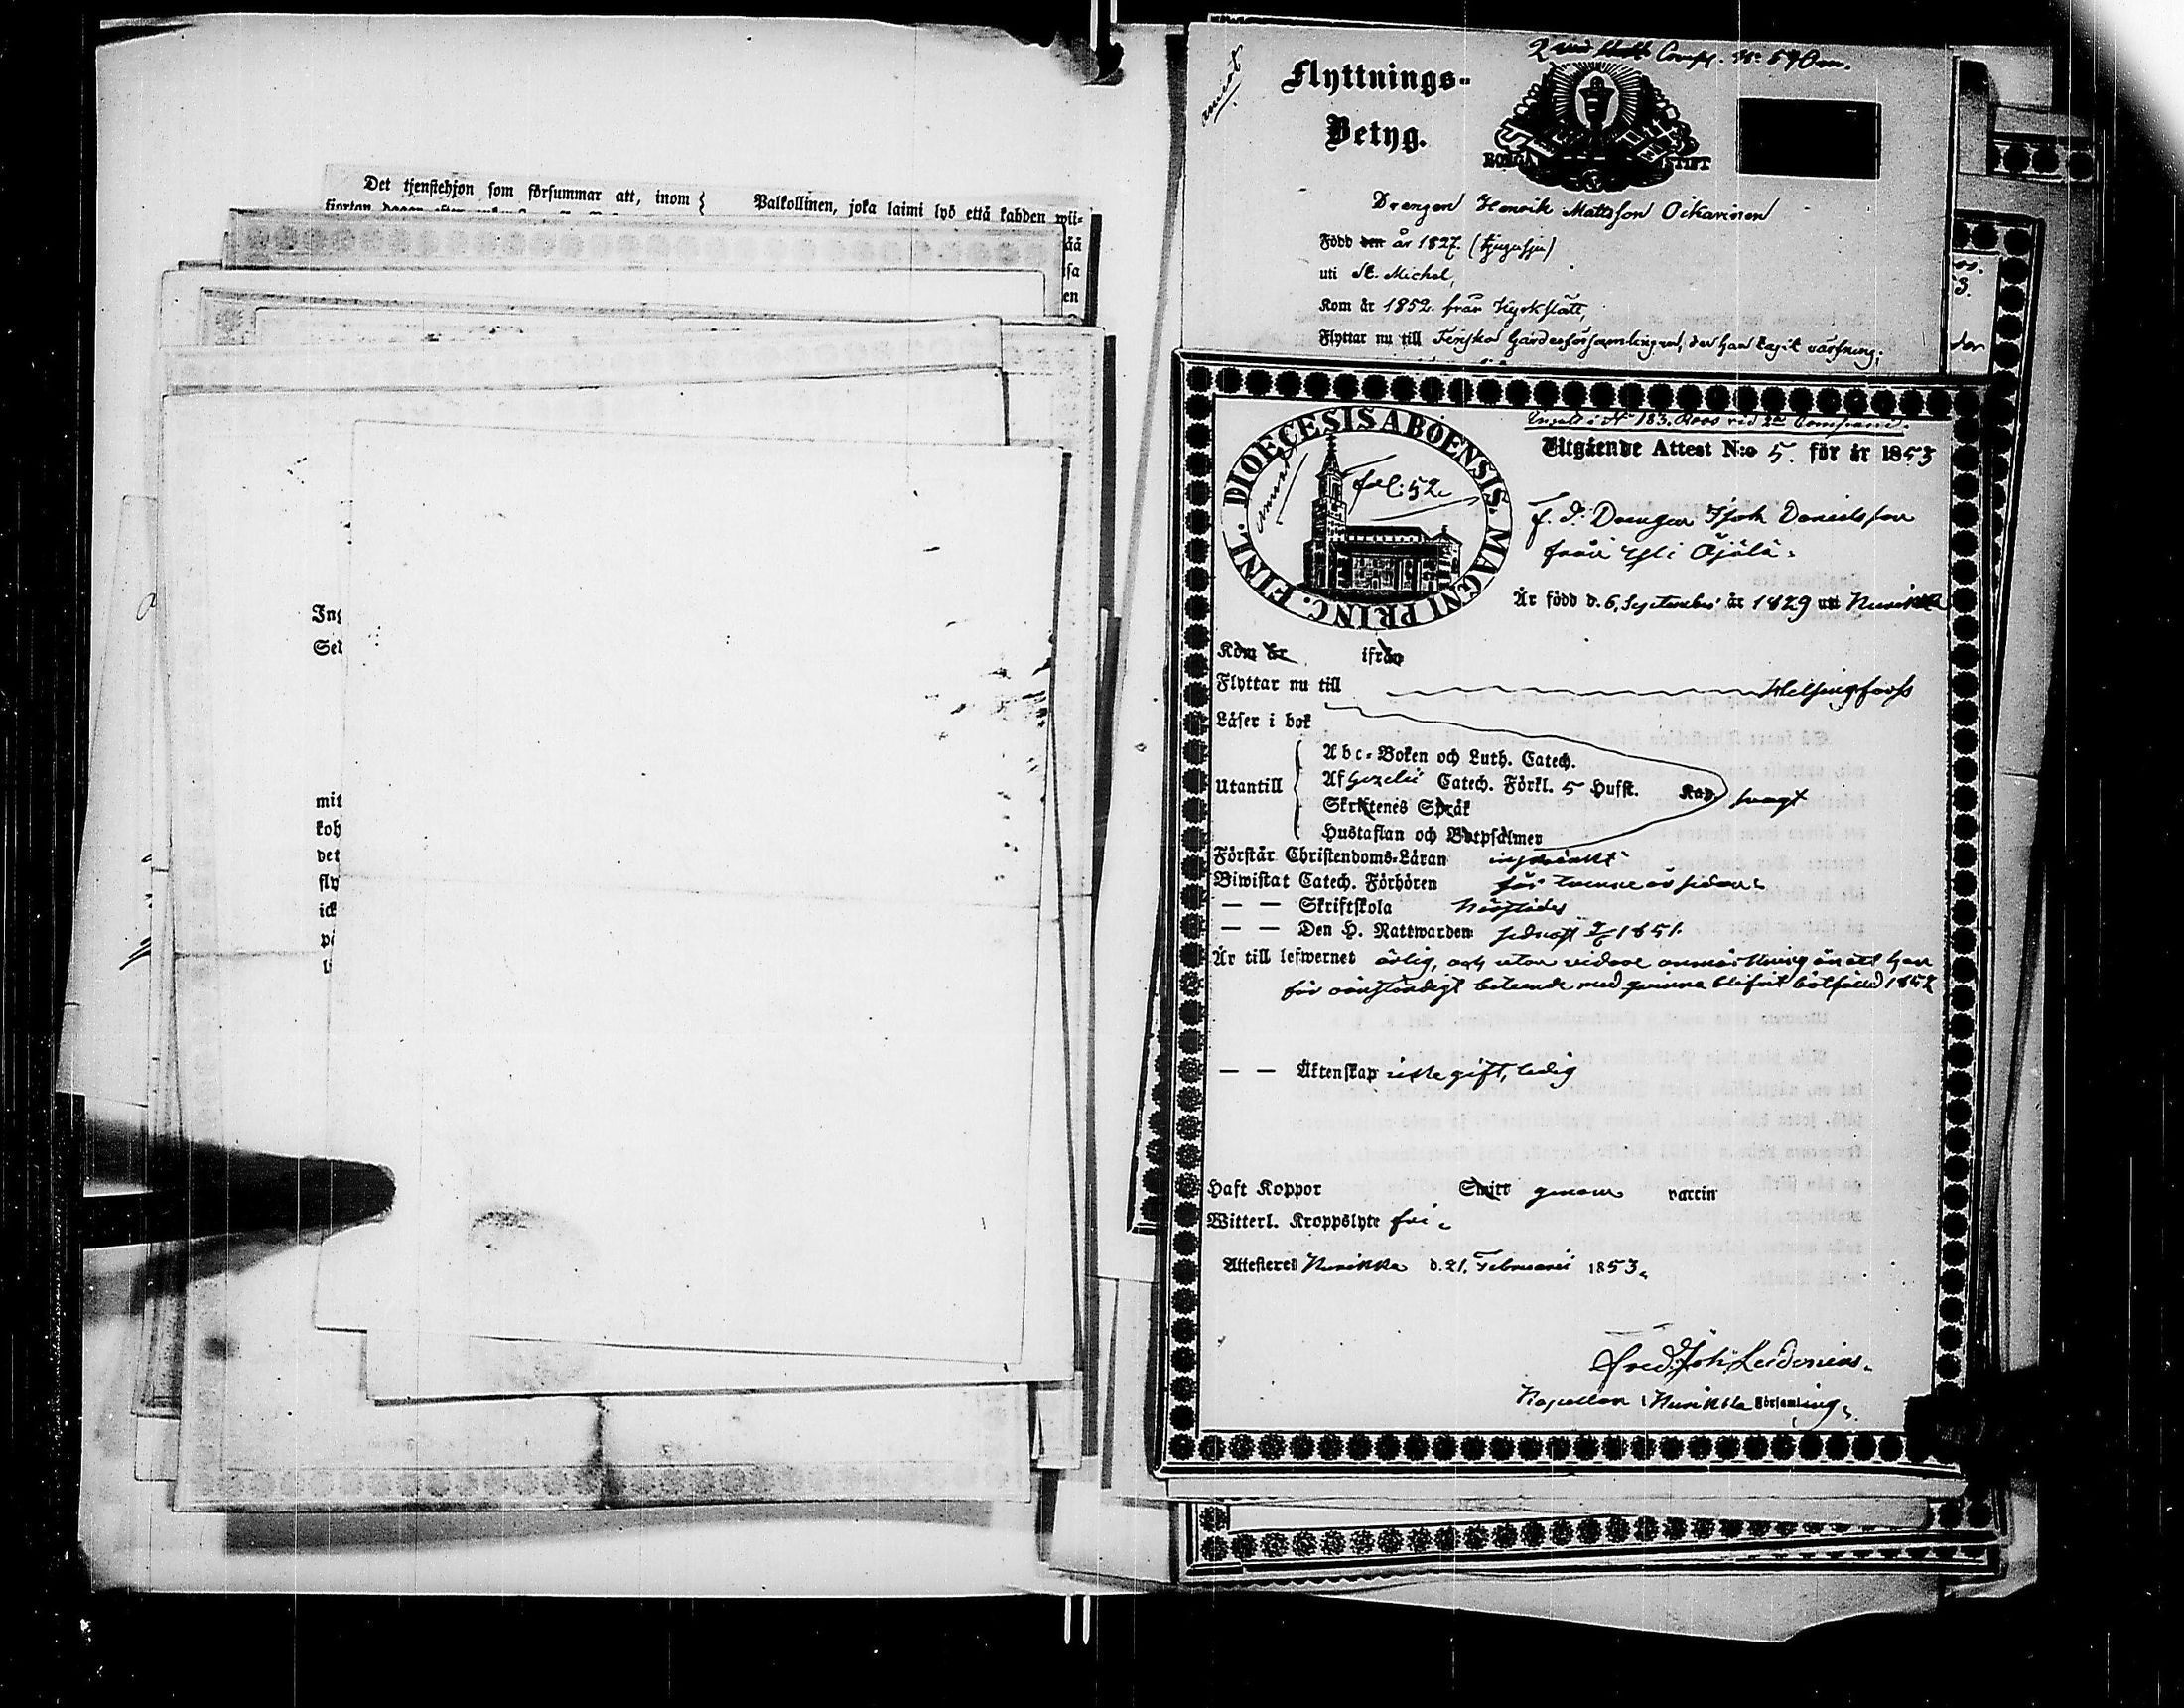 Det tjenstehjon som försummar att, inom
Palkollinen, joka laimi lyö että kahden wii-
ää
sa
en
Ing
Sed
mit
koh
det
fly
ick
på
Flyttnings-
Betyg.
BORGÅ STIFT
Drengen Henrik Mattsson Oikarinen
Född den år 1827. (tjugusju)
uti St. Michel,
Kom år 1852. från Kyrkslätt,
Flyttar nu till Finska Gardesförsamlingen, der han tagit värfning;
Insalt i No 183. Roos vid 2dra Companiet.
DIOECESIS ABOENSIS. MAGNI PRINC. FINL.
annot
fol: 52.
Utgående Attest N:o 5. för år 1853
F. d. Drengen Isak Danielsson
från Yli Äjälä.
Är född d. 6. September år 1829 uti Kurikka
Kom år ifrån
Flyttar nu till Helsingfors
Läser i bok
Utantill
Abc-Boken och Luth. Catech.
Af Gezelii Catech. Förkl. 5 Hufst. Kap. svagt
Skriftenes Språk
Hustaflan och Botpsalmer
Förstår Christendoms-Läran
Biwistat Catech. Förhören för tvenne år sedan
— — Skriftskola
— — Den H. Nattwarden senast 1851.
Är till lefwernet ärlig, och utan vidare anmärkning än att han
för oanständigt beteende med qvinna blifvit bötfälld 1852
— — Äktenskap icke gift, ledig
Haft Koppor Smitt genom vaccin
Witterl. Kroppslyte fri.
Attesteres Kurikka d. 21. Februarii 1853.
Fred. Joh.
Kapellan i Kurikka Församling.